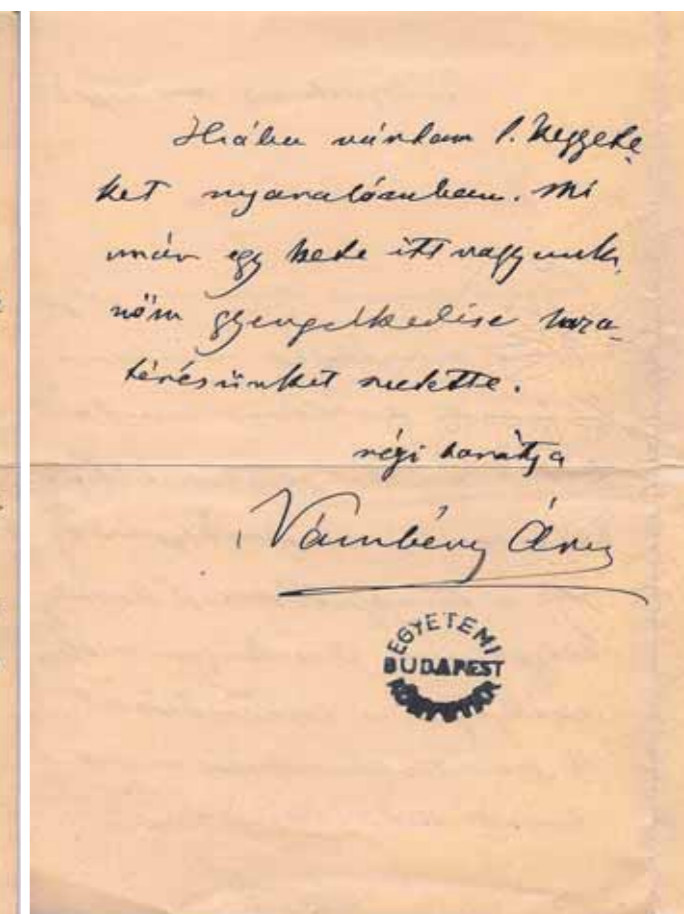 Hiába vártam l. Kegyete-
ket nyaralómban. Mi
már egy hete itt vagyunk,
nőm gyengélkedése haza-
térésünket sietette.
régi barátja
Vámbéry Ármin
EGYETEMI
BUDAPEST
KÖNYVTÁR